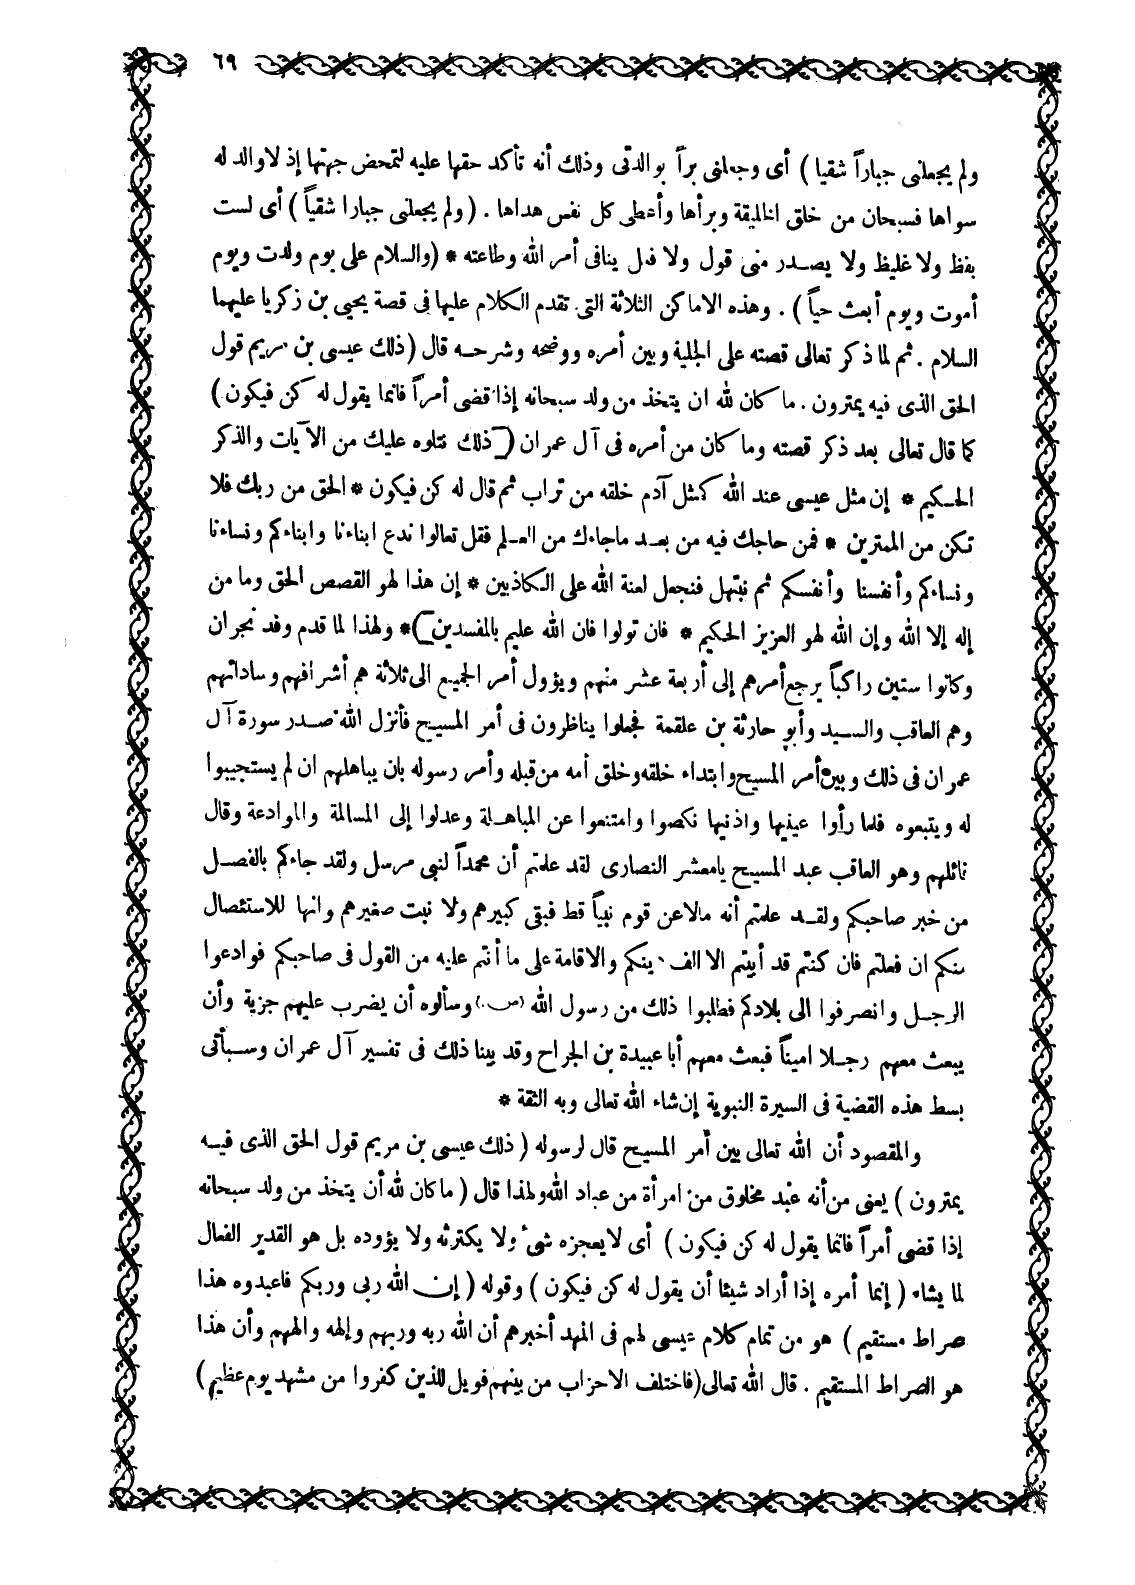 ٦٩
ولم يجعلنى جباراً شقيا ) أى وجعلنى براً بوالدتى وذلك أنه تأكد حقها عليه لتمحض جهتها إذ لاوالد له
سواها فسبحان من خلق الخليقة وبرأها وأعطى كل نفس هداها . ( ولم يجعلنى جبارا شقياً ) أى لست
بفظ ولا غليظ ولا يصدر منى قول ولا فعل ينافى أمر الله وطاعته * (والسلام على يوم ولدت ويوم
أموت ويوم أبعث حياً ) . وهذه الاماكن الثلاثة التى تقدم الكلام عليها فى قصة يحيى بن زكريا عليهما
السلام . ثم لما ذكر تعالى قصته على الجلية وبين أمره ووضحه وشرحه قال (ذلك عيسى بن مريم قول
الحق الذى فيه يمترون . ما كان لله ان يتخذ من ولد سبحانه إذا قضى أمراً فانما يقول له كن فيكون )
كما قال تعالى بعد ذكر قصته وما كان من أمره فى آل عمران ( ذلك نتلوه عليك من الآيات والذكر
الحكيم * إن مثل عيسى عند الله كمثل آدم خلقه من تراب ثم قال له كن فيكون * الحق من ربك فلا
تكن من الممترين * فمن حاجك فيه من بعد ماجاءك من العلم فقل تعالوا ندع ابناءنا وابناءكم ونساءنا
ونساءكم وأنفسنا وأنفسكم ثم نبتهل فنجعل لعنة الله على الكاذبين * إن هذا لهو القصص الحق وما من
إله إلا الله وإن الله لهو العزيز الحكيم * فان تولوا فان الله عليم بالمفسدين )* ولهذا لما قدم وفد نجران
وكانوا ستين راكباً يرجع أمرهم إلى أربعة عشر منهم ويؤول أمر الجميع الى ثلاثة هم أشرافهم وساداتهم
وهم العاقب والسيد وأبو حارثة بن علقمة فجعلوا يناظرون فى أمر المسيح فأنزل الله صدر سورة آل
عمران فى ذلك وبين أمر المسيح وابتداء خلقه وخلق أمه من قبله وأمر رسوله بان يباهلهم ان لم يستجيبوا
له ويتبعوه فلما رأوا عينيها واذنيها نكصوا وامتنعوا عن المباهلة وعدلوا إلى المسالمة والموادعة وقال
قائلهم وهو العاقب عبد المسيح يامعشر النصارى لقد علمتم أن محمداً لنبى مرسل ولقد جاءكم بالفصل
من خبر صاحبكم ولقد علمتم أنه مالاعن قوم نبياً قط فبقى كبيرهم ولا نبت صغيرهم وانها للاستئصال
منكم ان فعلتم فان كنتم قد أبيتم الا الف دينكم والاقامة على ما أنتم عليه من القول فى صاحبكم فوادعوا
الرجل وانصرفوا الى بلادكم فطلبوا ذلك من رسول الله (ص) وسألوه أن يضرب عليهم جزية وأن
يبعث معهم رجلا امينا فبعث معهم أبا عبيدة بن الجراح وقد بينا ذلك فى تفسير آل عمران وسيأتى
بسط هذه القضية فى السيرة النبوية إن شاء الله تعالى وبه الثقة *
والمقصود أن الله تعالى بين أمر المسيح قال لرسوله ( ذلك عيسى بن مريم قول الحق الذى فيه
يمترون ) يعنى من أنه عبد مخلوق من امرأة من عباد الله ولهذا قال ( ماكان لله أن يتخذ من ولد سبحانه
إذا قضى أمراً فانما يقول له كن فيكون ) أى لا يعجزه شىء ولا يكترثه ولا يؤوده بل هو القدير الفعال
لما يشاء ( إنما أمره إذا أراد شيئا أن يقول له كن فيكون ) وقوله ( إن الله ربى وربكم فاعبدوه هذا
صراط مستقيم ) هو من تمام كلام عيسى لهم فى المهد أخبرهم أن الله ربه وربهم وإلهه والههم وأن هذا
هو الصراط المستقيم . قال الله تعالى (فاختلف الاحزاب من بينهم فويل للذين كفروا من مشهد يوم عظيم )